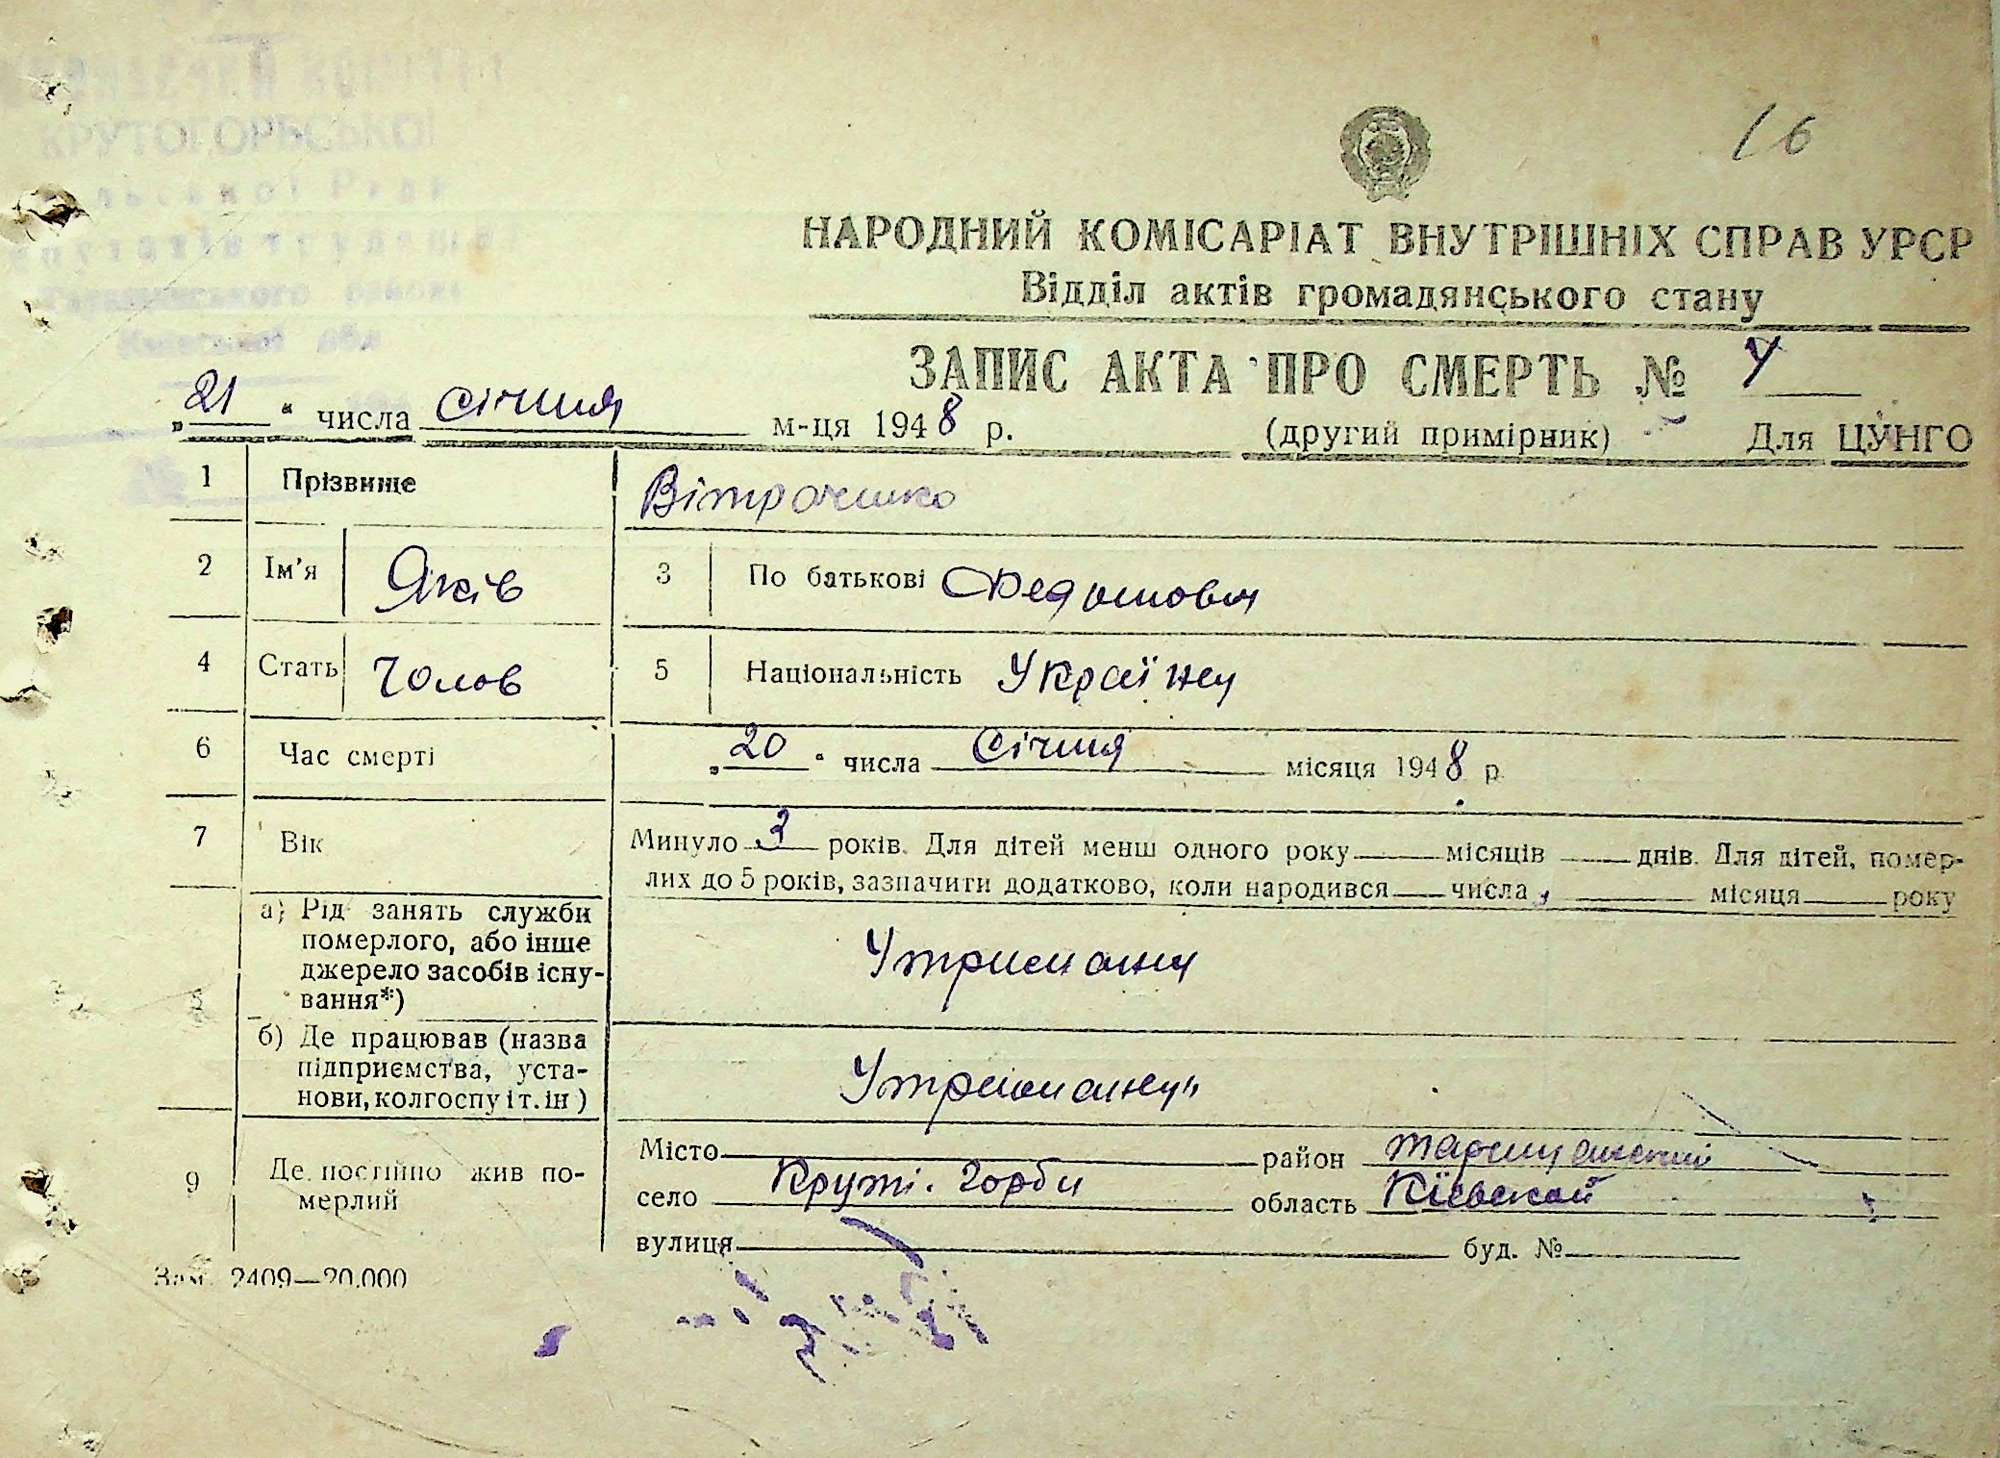 ВИКОНАВЧИЙ КОМІТЕТ
КРУТОГОРЬСЬКОЇ
Сільської Ради
депутатів трудящих
Таращанського району
Київської обл
16
НАРОДНИЙ КОМІСАРІАТ ВНУТРІШНІХ СПРАВ УРСР
Відділ актів громадянського стану
ЗАПИС АКТА ПРО СМЕРТЬ № 4
„21“ числа січня м-ця 1948 р. (другий примірник) Для ЦУНГО
1 Прізвище Вітрошко
2 Ім'я Яків 3 По батькові Федотович
4 Стать Чолов 5 Національність Українец
6 Час смерті „20“ числа січня місяця 1948 р
7 Вік Минуло 3 років. Для дітей менш одного року місяців днів. Для дітей, помер-
лих до 5 років, зазначити додатково, коли народився числа місяця року
8 а) Рід занять служби
померлого, або інше
джерело засобів існу-
вання*)
Утриманец
б) Де працював (назва
підприємства, уста-
нови, колгоспу і т. ін)
Утриманец
9 Де постійно жив по-
мерлий
Місто район Таращанский
село Круті. Горби область Кїевской
вулиця буд. №
Зам. 2409—20.000